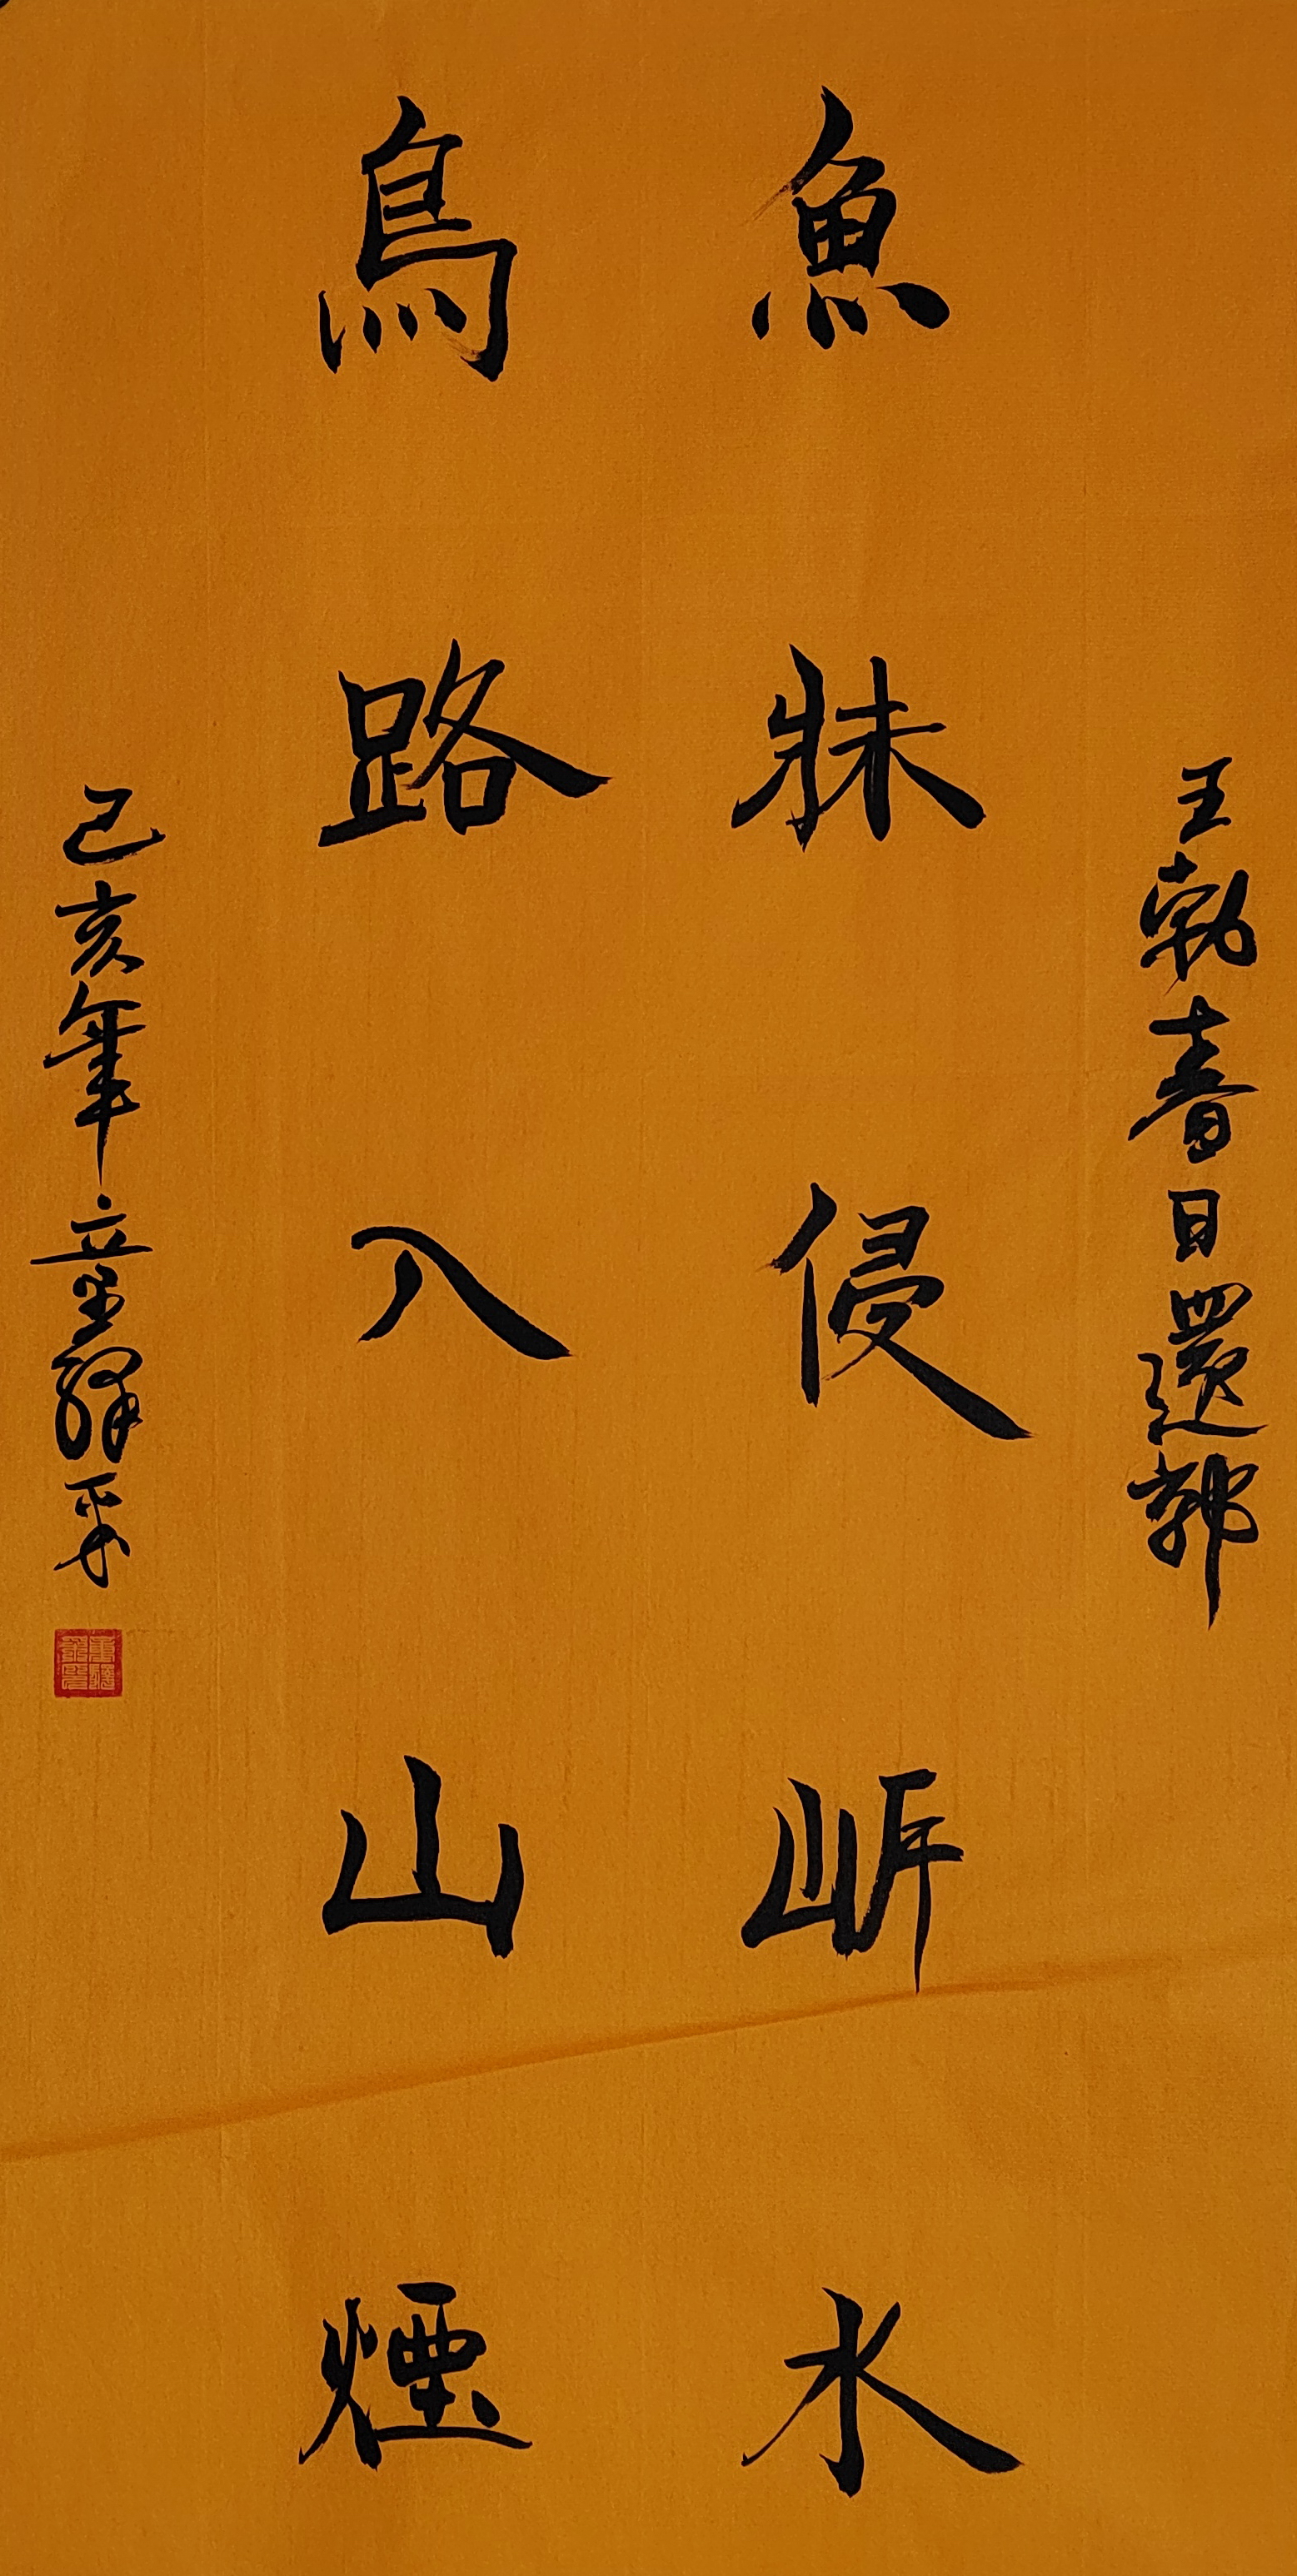 王勃春日還郊
魚牀侵岸水
鳥路入山煙
己亥年立